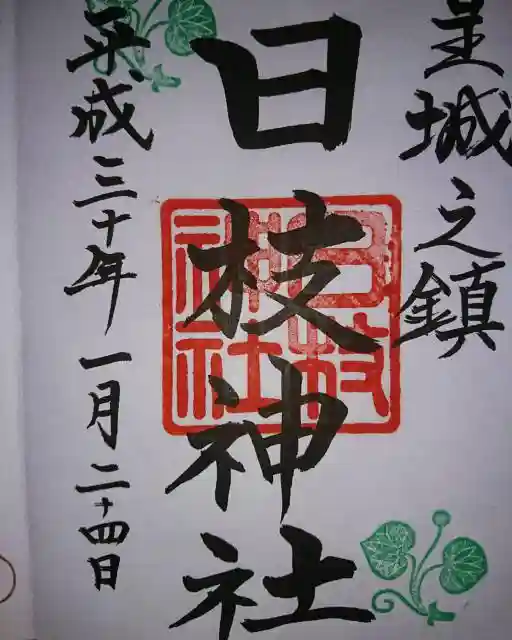 皇城之鎮
日枝神社
日枝神社
平成三十年一月二十四日